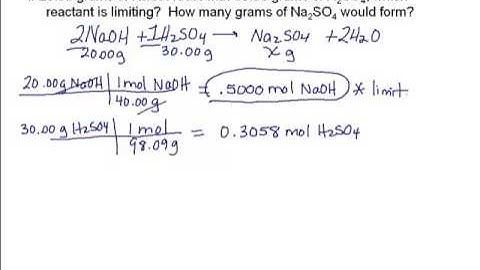 reactant is limiting? How many grams of Na₂SO₄ would form?
2NaOH + 1H₂SO₄ → Na₂SO₄ + 2H₂O
20.00g 30.00g x g
20.00g NaOH | 1 mol NaOH = .5000 mol NaOH * limit
40.00 g
30.00 g H₂SO₄ | 1 mol = 0.3058 mol H₂SO₄
98.09g